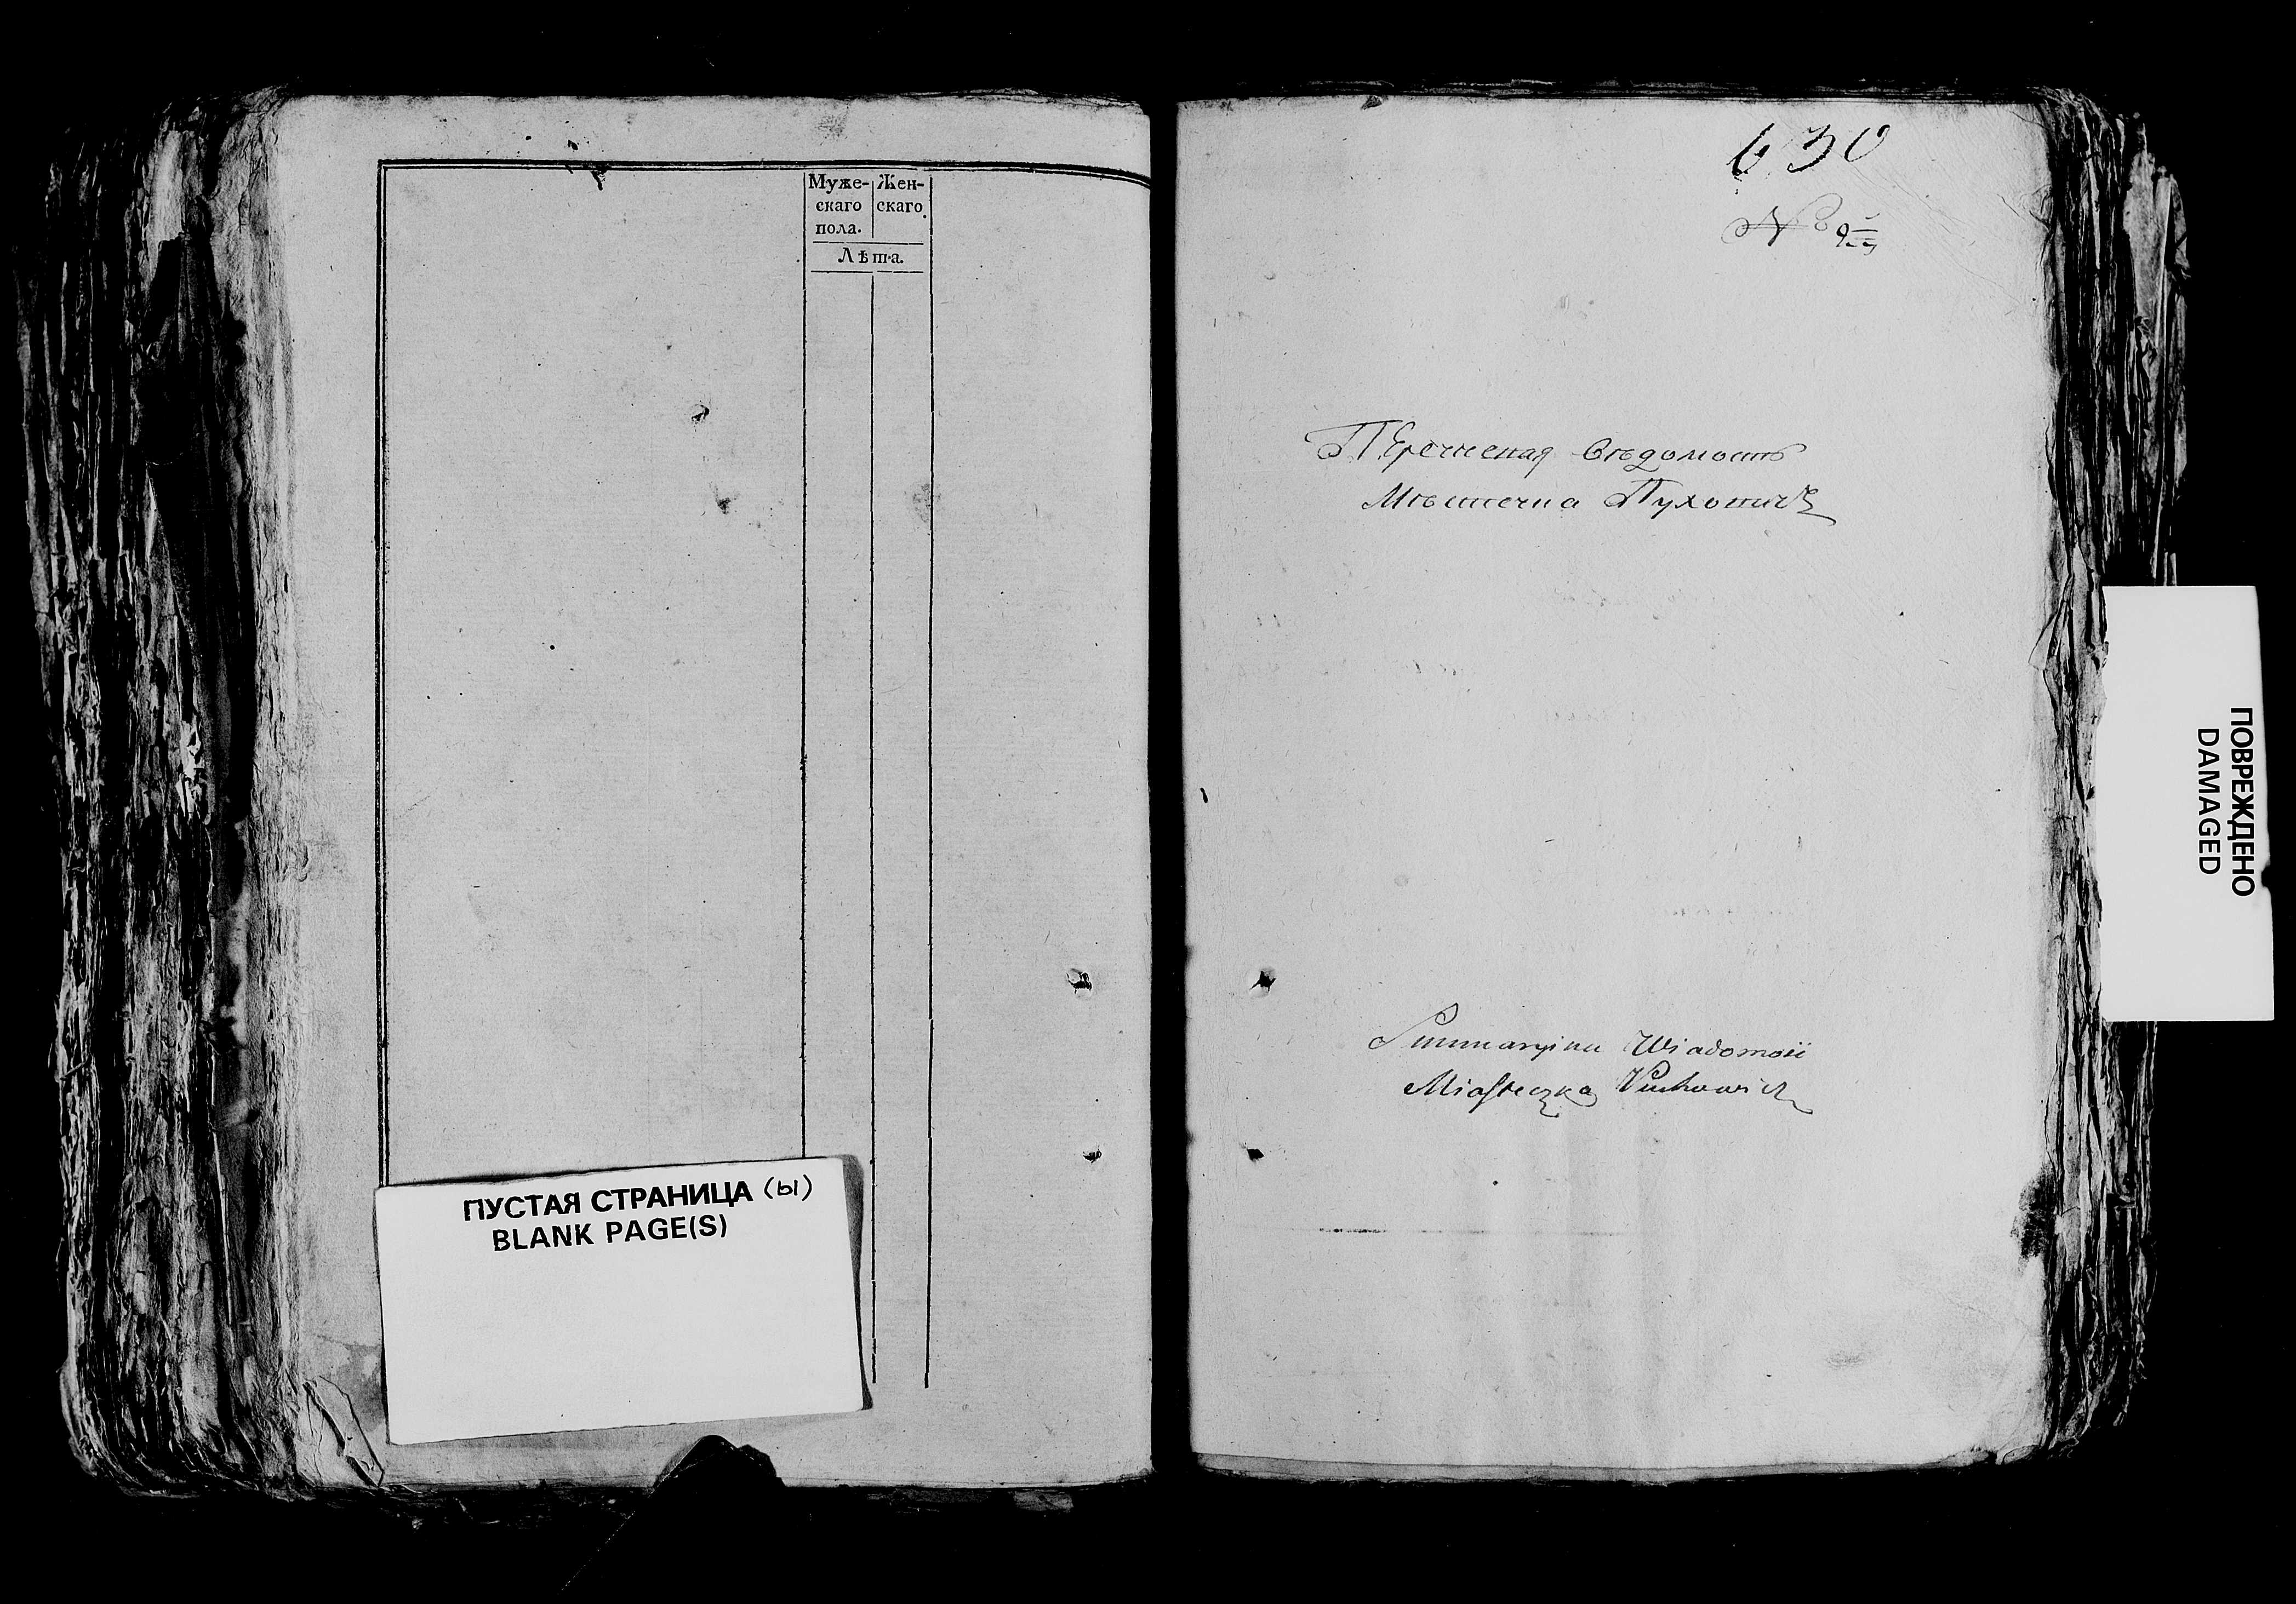 Муже- Жен-
скаго скаго.
пола.
Лѣта.
ПУСТАЯ СТРАНИЦА (ы)
BLANK PAGE(S)
630
№ 9
Перечневая вѣдомость
Мѣстечка Пуховичъ
Summaryina Wiadomość
Miasteczka Puchowicz
ПОВРЕЖДЕНО
DAMAGED